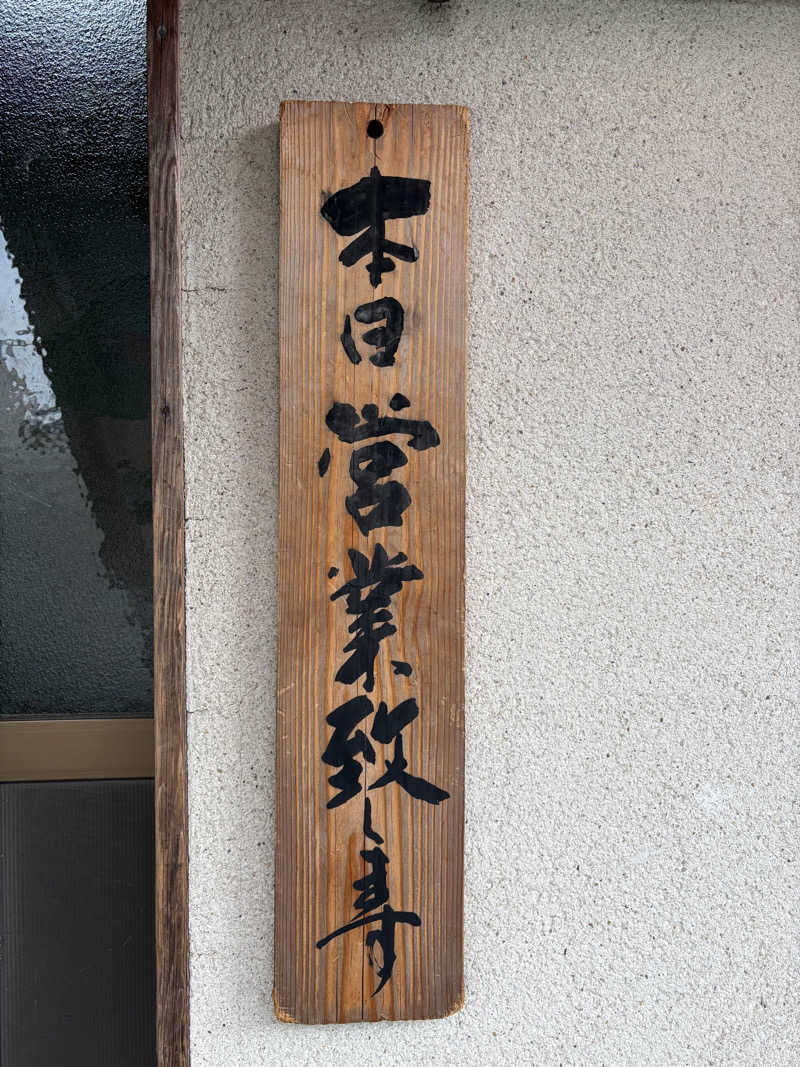 本日営業致します